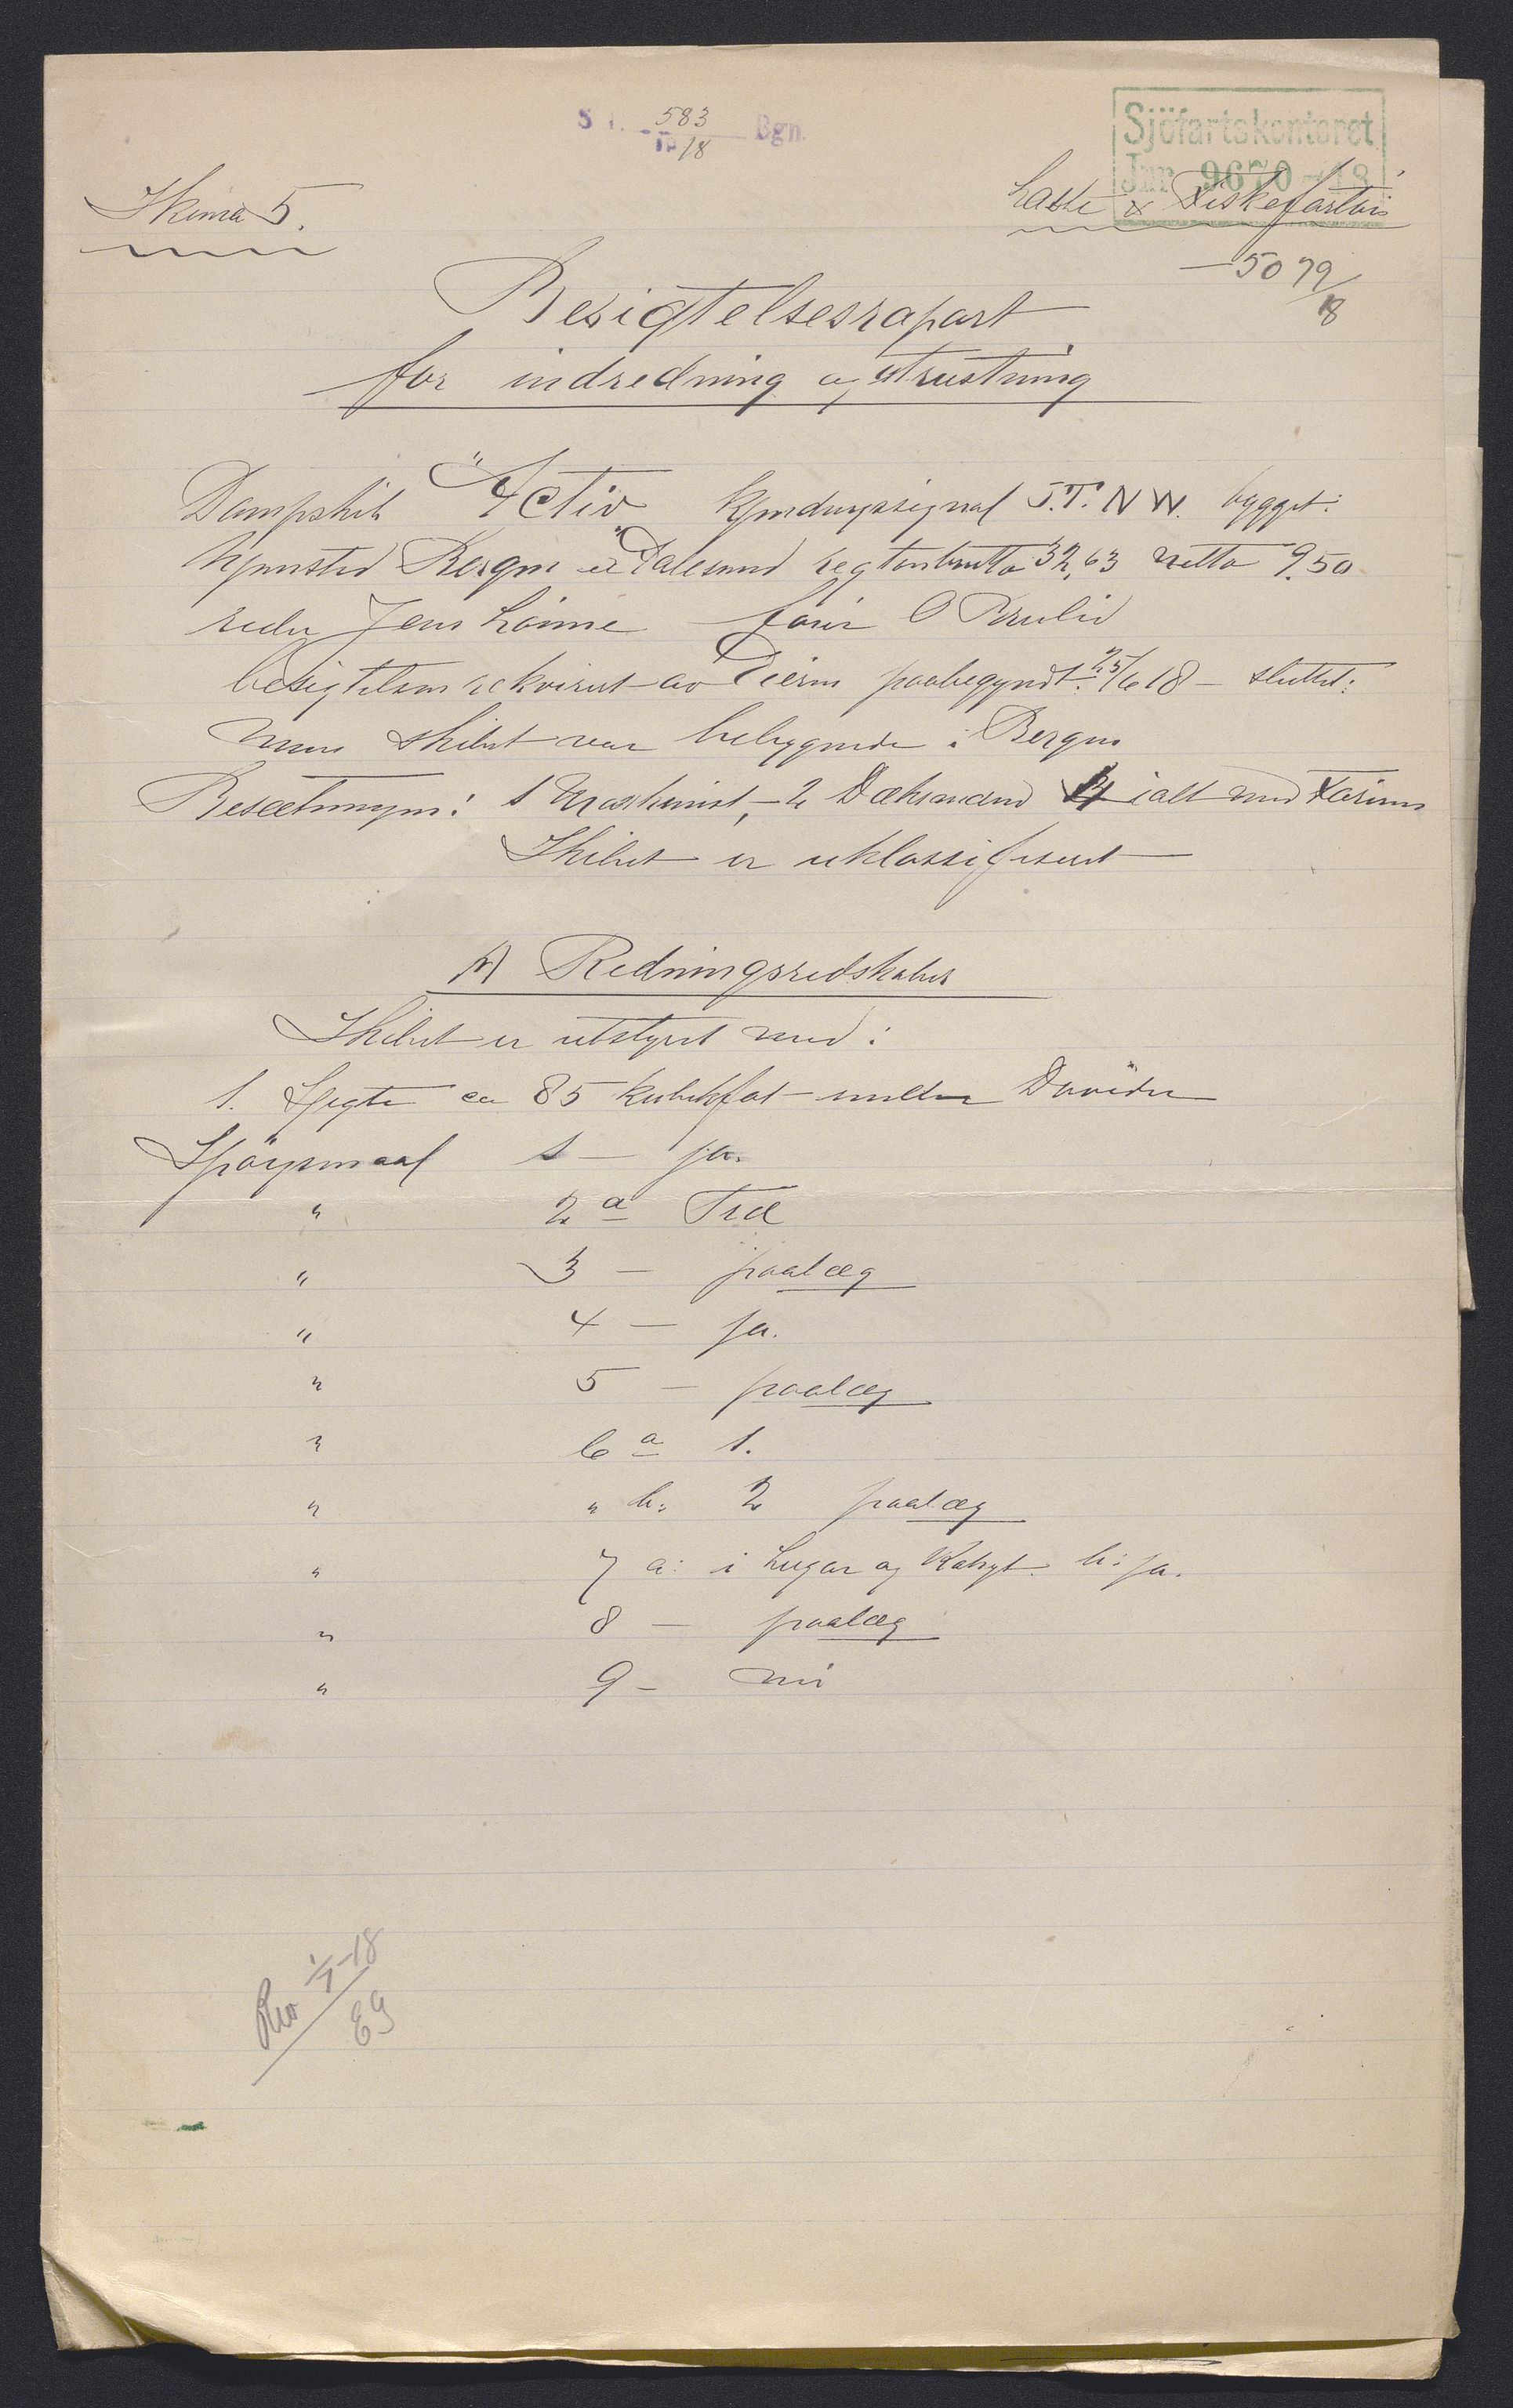 S 583 Bgn.
18
Sjöfartskontoret
Jnr 9670 - 18
Skema 5.
Laste & Fiskefartøi
5079/18
Besigtelsesrapart
for indredning og utrustning
Dampskib "Activ" Kjendingssignal J.T.N.W. bygget:
hjemsted Bergen regtonbrutto 32,63 netto 9.50
reder Jens Lönne förer O
besigtelsen rekvirert av Eieren paabegyndt: 25/6 18 - sluttet:
mens skibet var beliggende i Bergen
Besætningen: 1 Maskinist, - 2 Dæksmænd 4 ialt med Föreren
Skibet er uklassifisert
A) Redningsredskaber
Skibet er utstyret med:
1. Gigte ca 85 kubikfot under Davider
Spörgsmaal 1 - ja.
" 2 a Træ
" 3 - paalæg
" 4 - ja.
" 5 - paalæg
" 6 a 1.
" " b: 2 paalæg
" 7 a: i Lugar og Kahyt. b: ja.
" 8 - paalæg
" 9 - nei
1/7-18
EG